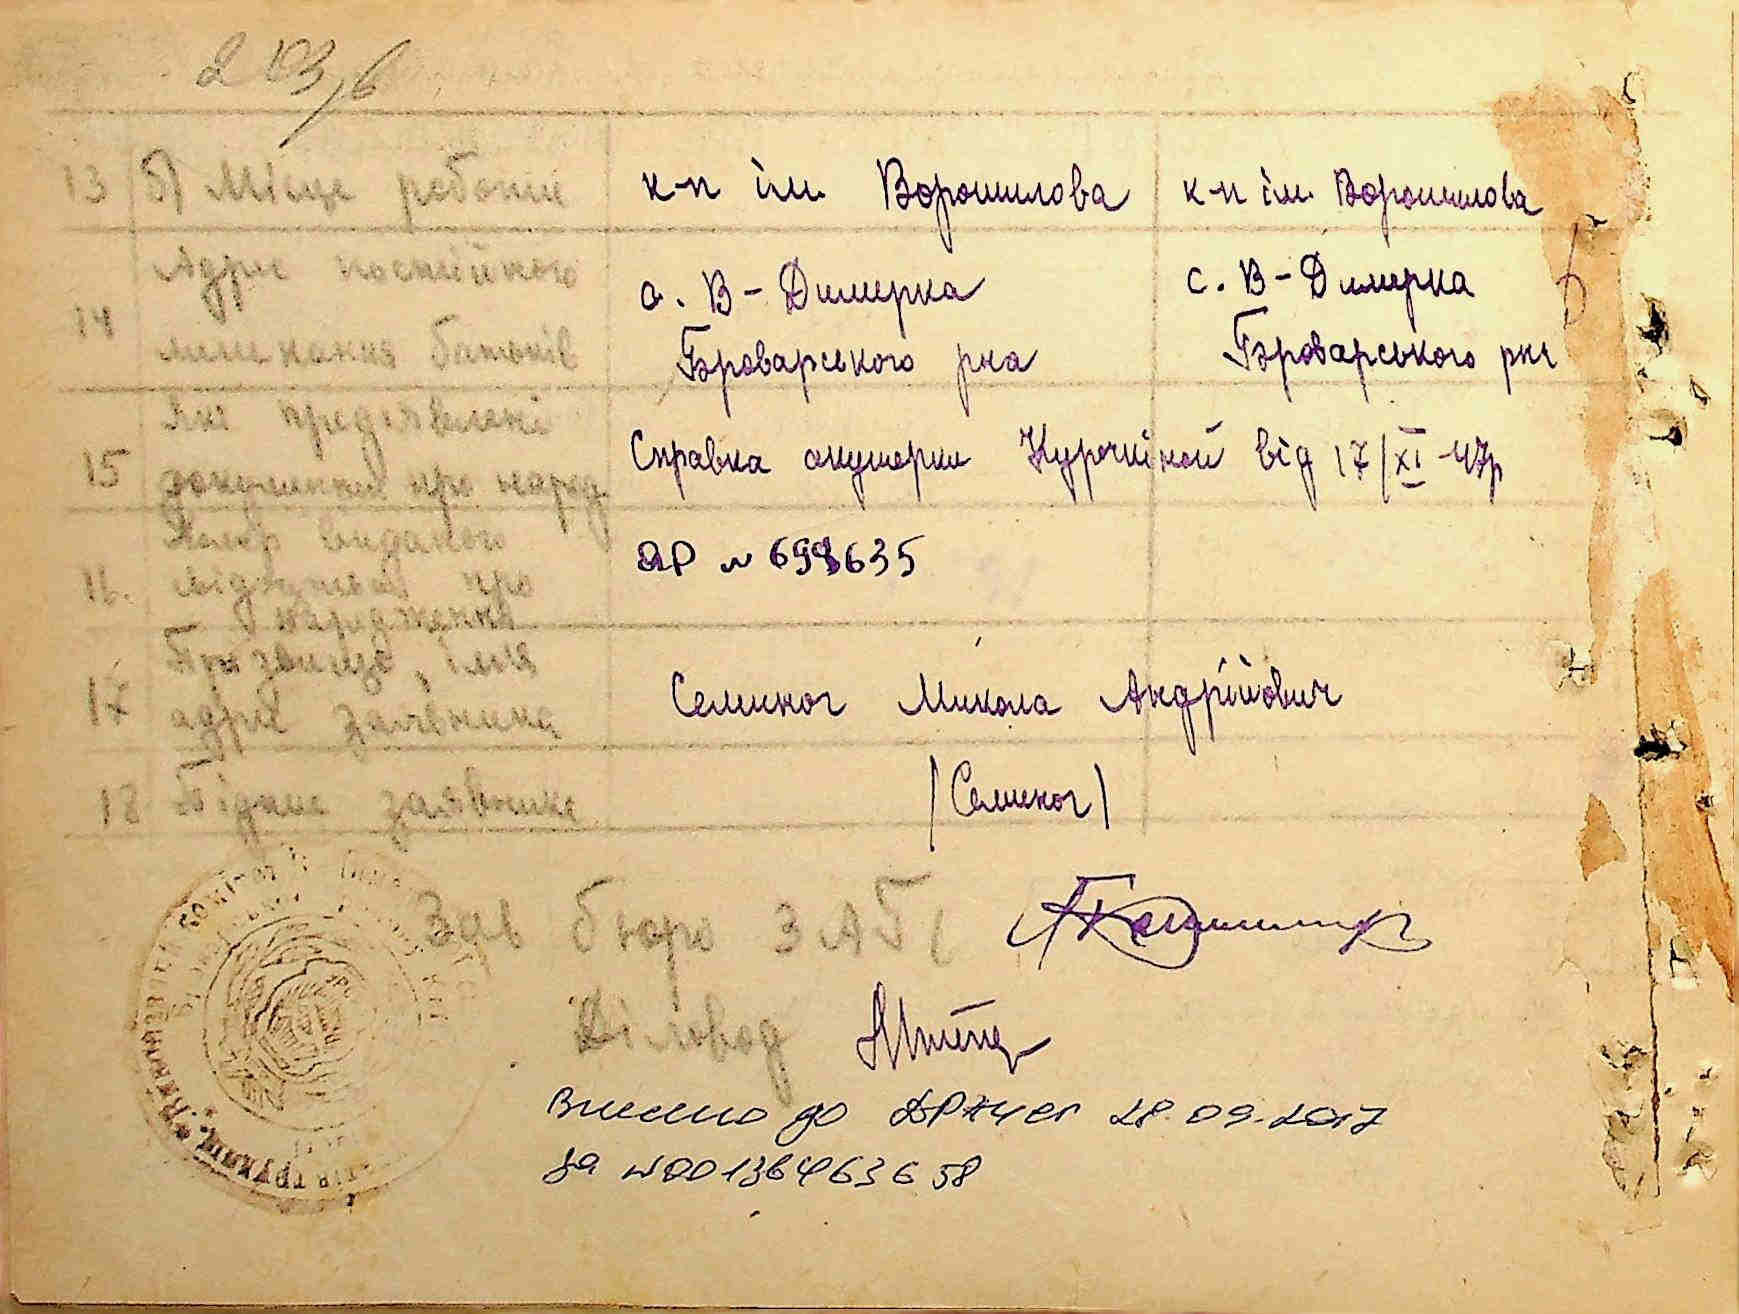 203,6
13 б) Місце роботи к-п ім. Ворошилова к-п ім. Ворошилова
Адрес постійного с. В-Димерка с. В-Димерка
14 мешкання батьків Броварського рна Броварського рна
Які предявлені
15 документи про народ Справка акушерки Курочкіной від 17/XI-47р
Номер виданого
16. свідоцтва про ЯР № 698635
народження
Призвище, імя
17 адрес заявника Семиног Микола Андрійович
18 Підпис заявника (Семиног)
Зав бюро ЗАГС
Діловод
Внесено до ДРАЦСГ 28.09.2017
за №00136463658